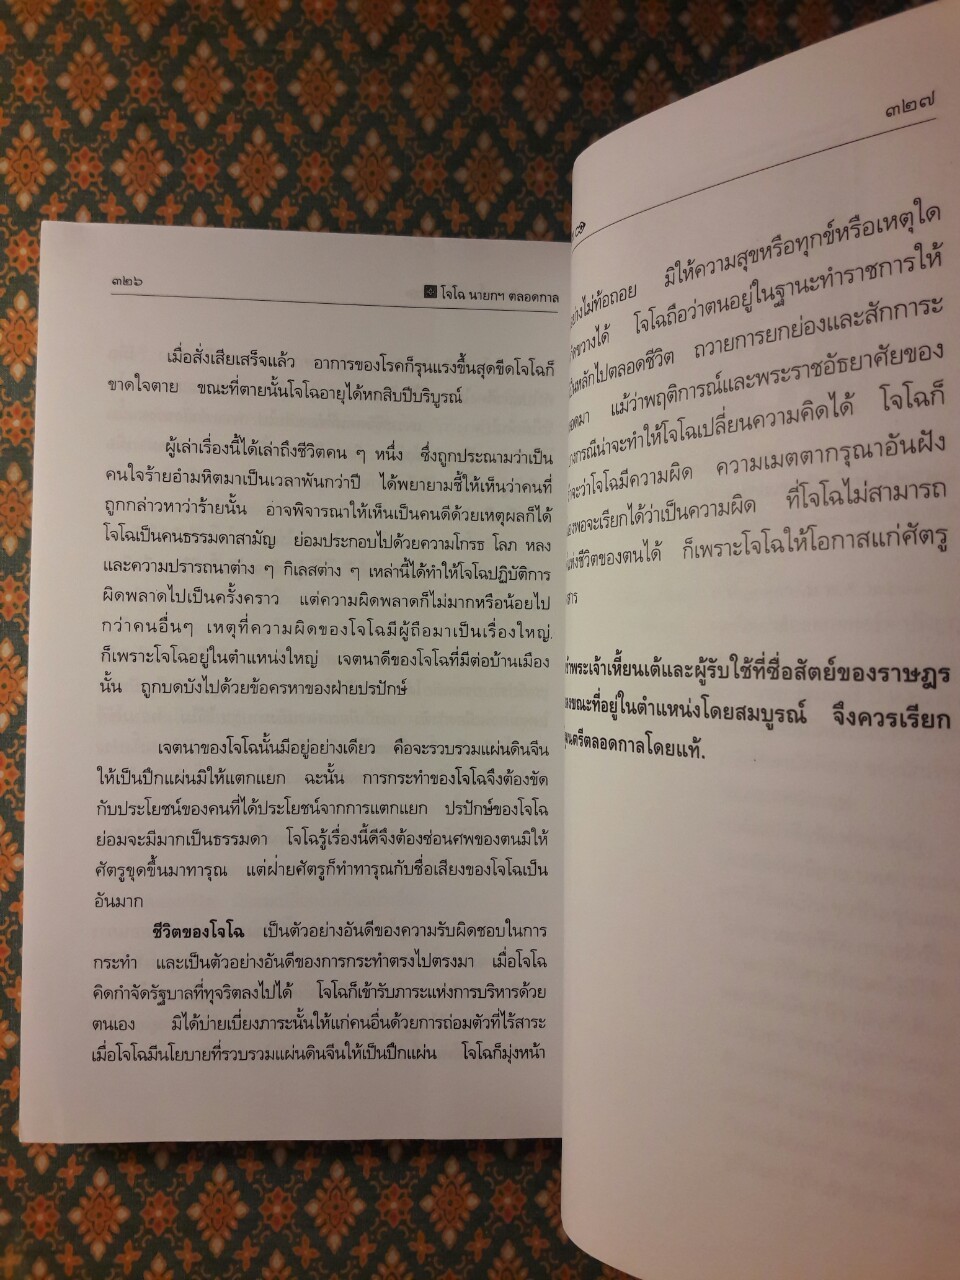 ๓๒๖
โจโฉ นายกฯ ตลอดกาล
เมื่อสั่งเสียเสร็จแล้ว อาการของโรคก็รุนแรงขึ้นสุดขีดโจโฉก็
ขาดใจตาย ขณะที่ตายนั้นโจโฉอายุได้หกสิบปีบริบูรณ์
ผู้เล่าเรื่องนี้ได้เล่าถึงชีวิตคน ๆ หนึ่ง ซึ่งถูกประณามว่าเป็น
คนใจร้ายอำมหิตมาเป็นเวลาพันกว่าปี ได้พยายามชี้ให้เห็นว่าคนที่
ถูกกล่าวหาว่าร้ายนั้น อาจพิจารณาให้เห็นเป็นคนดีด้วยเหตุผลก็ได้
โจโฉเป็นคนธรรมดาสามัญ ย่อมประกอบไปด้วยความโกรธ โลภ หลง
และความปรารถนาต่าง ๆ กิเลสต่าง ๆ เหล่านี้ได้ทำให้โจโฉปฏิบัติการ
ผิดพลาดไปเป็นครั้งคราว แต่ความผิดพลาดก็ไม่มากหรือน้อยไป
กว่าคนอื่นๆ เหตุที่ความผิดของโจโฉมีผู้ถือมาเป็นเรื่องใหญ่.
ก็เพราะโจโฉอยู่ในตำแหน่งใหญ่ เจตนาดีของโจโฉที่มีต่อบ้านเมือง
นั้น ถูกบดบังไปด้วยข้อครหาของฝ่ายปรปักษ์
เจตนาของโจโฉนั้นมีอยู่อย่างเดียว คือจะรวบรวมแผ่นดินจีน
ให้เป็นปึกแผ่นมิให้แตกแยก ฉะนั้น การกระทำของโจโฉจึงต้องขัด
กับประโยชน์ของคนที่ได้ประโยชน์จากการแตกแยก ปรปักษ์ของโจโฉ
ย่อมจะมีมากเป็นธรรมดา โจโฉรู้เรื่องนี้ดีจึงต้องซ่อนศพของตนมิให้
ศัตรูขุดขึ้นมาทารุณ แต่ฝ่ายศัตรูก็ทำทารุณกับชื่อเสียงของโจโฉเป็น
อันมาก
ชีวิตของโจโฉ เป็นตัวอย่างอันดีของความรับผิดชอบในการ
กระทำ และเป็นตัวอย่างอันดีของการกระทำตรงไปตรงมา เมื่อโจโฉ
คิดกำจัดรัฐบาลที่ทุจริตลงไปได้ โจโฉก็เข้ารับภาระแห่งการบริหารด้วย
ตนเอง มิได้บ่ายเบี่ยงภาระนั้นให้แก่คนอื่นด้วยการถ่อมตัวที่ไร้สาระ
เมื่อโจโฉมีนโยบายที่รวบรวมแผ่นดินจีนให้เป็นปึกแผ่น โจโฉก็มุ่งหน้า
๓๒๗
ย่างไม่ท้อถอย มิให้ความสุขหรือทุกข์หรือเหตุใด
ขวางได้ โจโฉถือว่าตนอยู่ในฐานะทำราชการให้
หลักไปตลอดชีวิต ถวายการยกย่องและสักการะ
ตมา แม้ว่าพฤติการณ์และพระราชอัธยาศัยของ
กรณีน่าจะทำให้โจโฉเปลี่ยนความคิดได้ โจโฉก็
จะว่าโจโฉมีความผิด ความเมตตากรุณาอันฝัง
พอจะเรียกได้ว่าเป็นความผิด ที่โจโฉไม่สามารถ
ชีวิตของตนได้ ก็เพราะโจโฉให้โอกาสแก่ศัตรู
สาร
พระเจ้าเหี้ยนเต้และผู้รับใช้ที่ซื่อสัตย์ของราษฎร
ขณะที่อยู่ในตำแหน่งโดยสมบูรณ์ จึงควรเรียก
นตรีตลอดกาลโดยแท้.